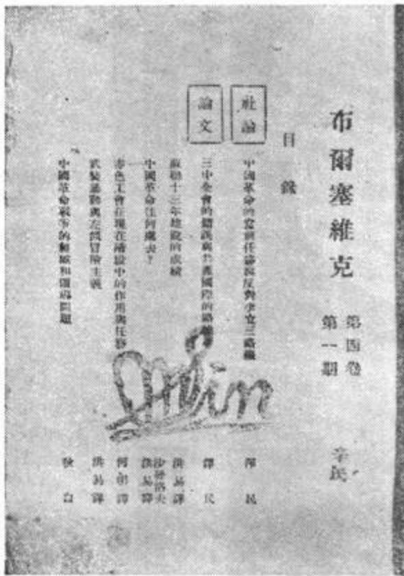 布爾塞維克
第四卷
第一期
辛民
目錄
社論
中國革命的當前任務與反對李立三路綫
澤民
論文
三中全會的錯誤與共產國際的路綫
澤民
蘇聯十三年建設的成績
洪易譯
中國革命往何處去?
洪易譯
赤色工會在現在階段中的作用與任務
何明譯
武裝暴動與左傾冒險主義
洪易譯
中國革命戰爭的
問題